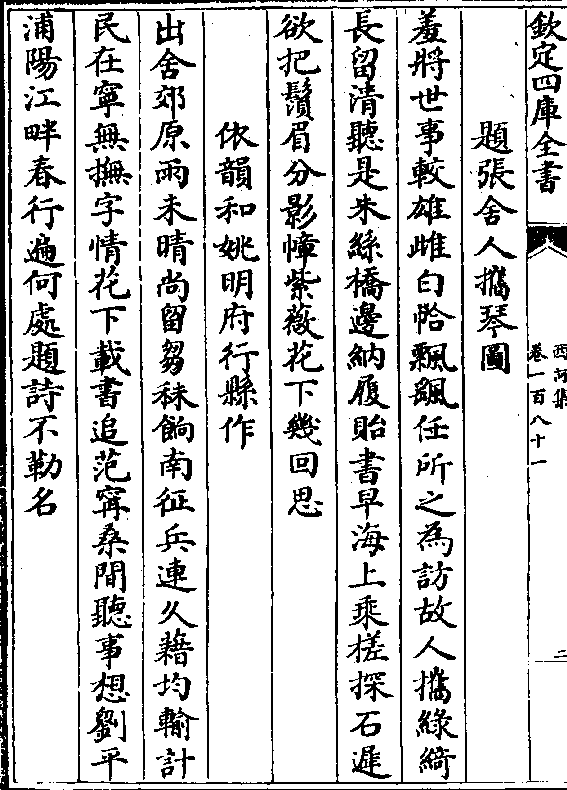 欽定四庫全書
西河集
卷一百八十一
二
題張舍人攜琴圖
羞將世事較雄雌白帢飄颻任所之為訪故人攜綠綺
長留清聽是朱絲橋邊納履貽書早海上乘槎探石遲
欲把鬚眉分影幛紫薇花下幾回思
依韻和姚明府行縣作
出舍郊原雨未晴尚留芻秣餉南征兵連久藉均輸計
民在寧無撫字情花下載書追范甯桑間聽事想劉平
浦陽江畔春行遍何處題詩不勒名